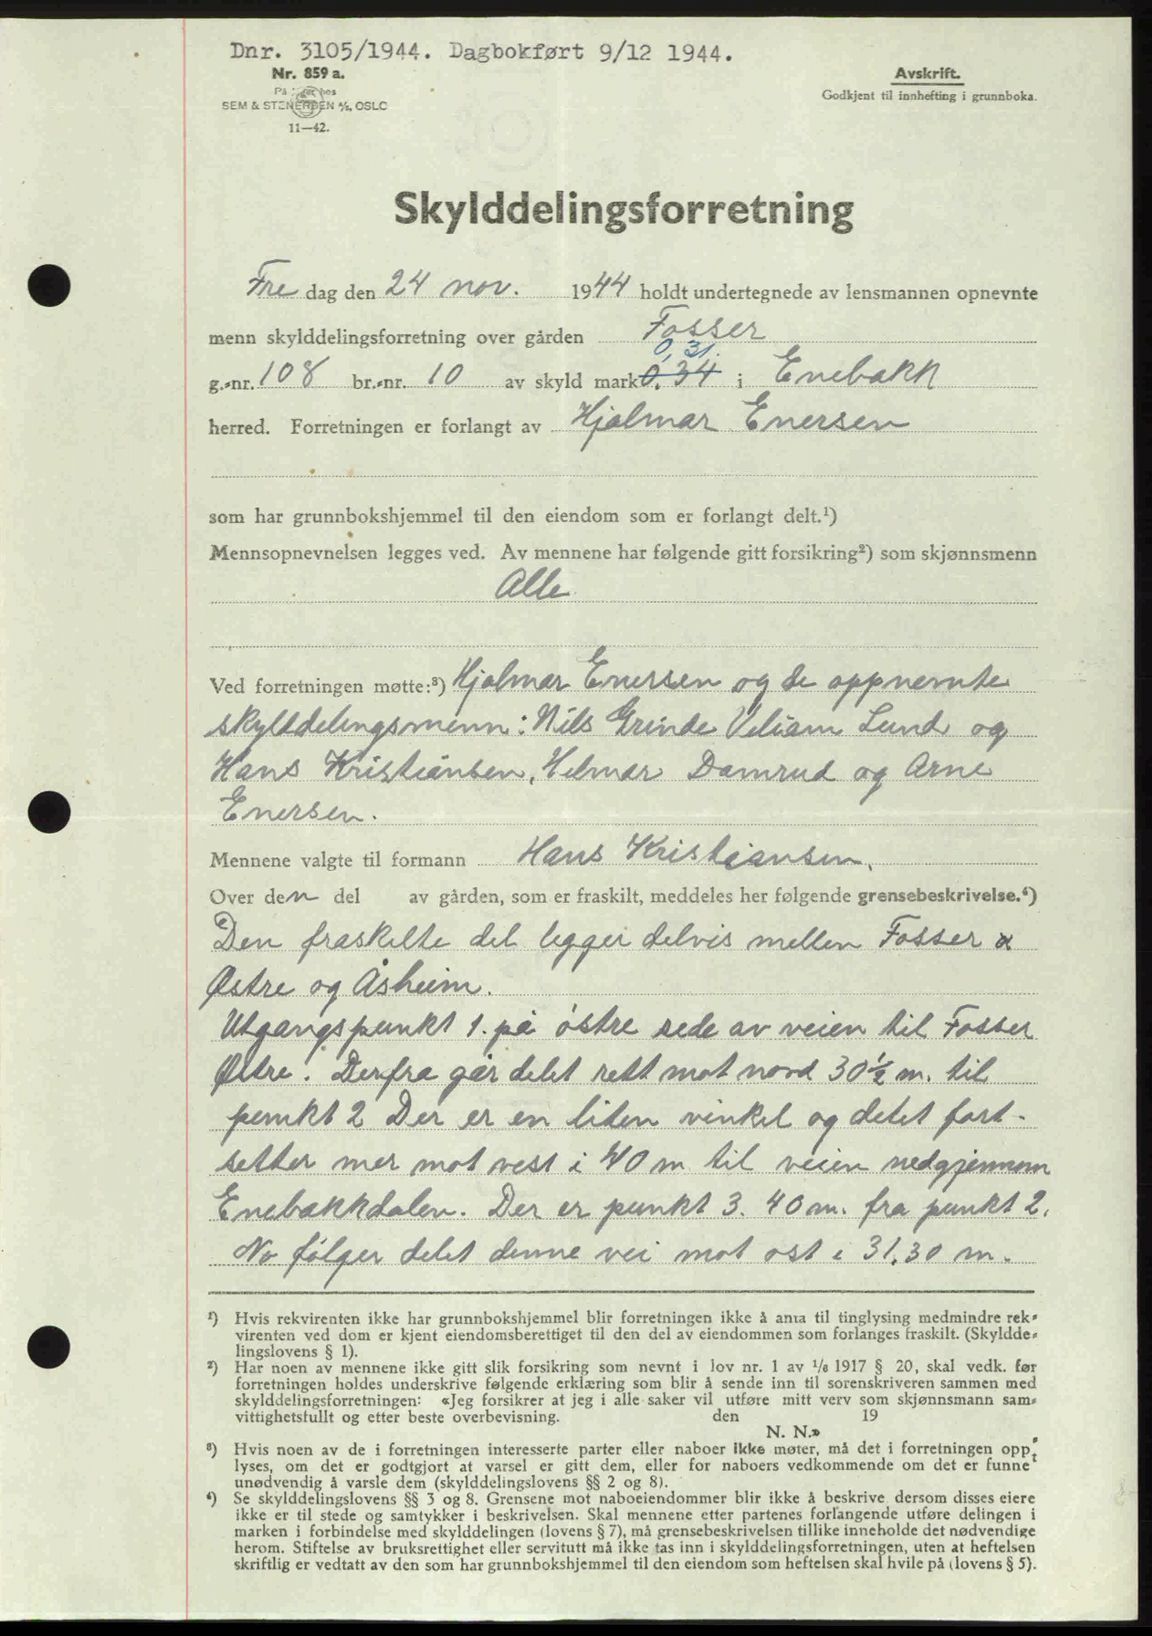 Dnr. 3105/1944. Dagbokført 9/12 1944.
Nr. 859 a.
SEM & STENERSEN A/S, OSLO
11—42.
Avskrift.
Godkjent til innhefting i grunnboka.
Skylddelingsforretning
Fre dag den 24 nov. 1944 holdt undertegnede av lensmannen opnevnte
menn skylddelingsforretning over gården Fosser
0,31.
g.-nr. 108 br.-nr. 10 av skyld mark 0.34 i Enebakk
herred. Forretningen er forlangt av Hjalmar Enersen
som har grunnbokshjemmel til den eiendom som er forlangt delt.¹)
Mennsopnevnelsen legges ved. Av mennene har følgende gitt forsikring²) som skjønnsmenn
Alle
Ved forretningen møtte:³) Hjalmar Enersen og de oppnevnte
skylddelingsmenn: Nils Grinde Viliam Lund og
Hans Kristiansen, Helmar Damrud og Arne
Enersen.
Mennene valgte til formann Hans Kristiansen.
Over den del av gården, som er fraskilt, meddeles her følgende grensebeskrivelse.⁴)
Den fraskilte del legger delvis mellen Fosser
Østre og Åsheim.
Utgangspunkt 1. på østre side av veien til Fosser
Østre. Derfra går delet rett mot nord 30½ m. til
punkt 2 Der er en liten vinkel og delet fort-
setter mer mot vest i 40 m til veien nedgjennom
Enebakkdalen. Der er punkt 3. 40 m. fra punkt 2.
No følger delet denne vei mot øst i 31,30 m.
¹) Hvis rekvirenten ikke har grunnbokshjemmel blir forretningen ikke å anta til tinglysing medmindre rek-
virenten ved dom er kjent eiendomsberettiget til den del av eiendommen som forlanges fraskilt. (Skyldde-
lingslovens § 1).
²) Har noen av mennene ikke gitt slik forsikring som nevnt i lov nr. 1 av ¹/₆ 1917 § 20, skal vedk. før
forretningen holdes underskrive følgende erklæring som blir å sende inn til sorenskriveren sammen med
skylddelingsforretningen: «Jeg forsikrer at jeg i alle saker vil utføre mitt verv som skjønnsmann sam-
vittighetsfullt og etter beste overbevisning. den 19
N. N.»
³) Hvis noen av de i forretningen interesserte parter eller naboer ikke møter, må det i forretningen opp-
lyses, om det er godtgjort at varsel er gitt dem, eller for naboers vedkommende om det er funnet
unødvendig å varsle dem (skylddelingslovens §§ 2 og 8).
⁴) Se skylddelingslovens §§ 3 og 8. Grensene mot naboeiendommer blir ikke å beskrive dersom disses eiere
ikke er til stede og samtykker i beskrivelsen. Skal mennene etter partenes forlangende utføre delingen i
marken i forbindelse med skylddelingen (lovens § 7), må grensebeskrivelsen tillike inneholde det nødvendige
herom. Stiftelse av bruksrettighet eller servitutt må ikke tas inn i skylddelingsforretningen, uten at heftelsen
skriftlig er vedtatt av den som har grunnbokshjemmel til den eiendom som heftelsen skal hvile på (lovens § 5).